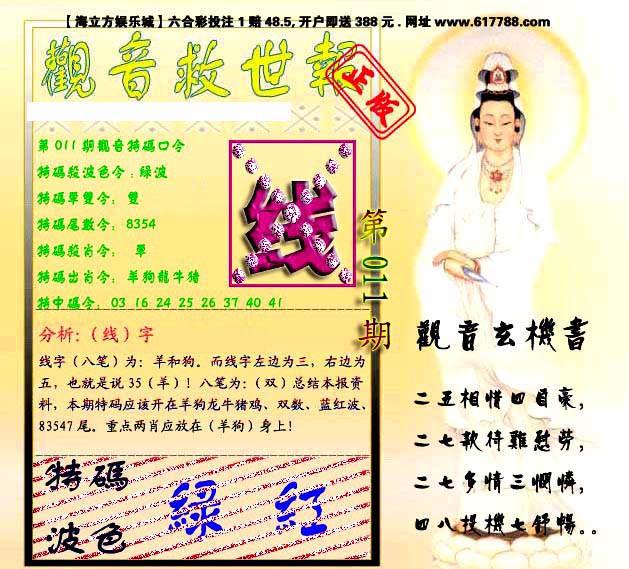 【海立方娱乐城】六合彩投注1赔48.5,开户即送388元.网址www.617788.com
觀音救世報
正传
第011期觀音特碼口令
特碼殺波色令:綠波
特碼單雙令: 雙
特碼尾數令: 8354
特碼殺肖令: 單
特碼出肖令: 羊狗龍牛猪
特中碼令: 03 16 24 25 26 37 40 41
线
第011期
分析:(线)字
线字（八笔）为：羊和狗。而线字左边为三，右边为
五，也就是说35（羊）！八笔为：（双）总结本报资
料，本期特码应该开在羊狗龙牛猪鸡、双数、蓝红波、
83547尾。重点两肖应放在（羊狗）身上！
特碼
波色
綠 紅
觀音玄機書
二五相惜四目豪，
二七軟待難慰勞，
二七多情三憫憐，
四八授機七舒暢。。